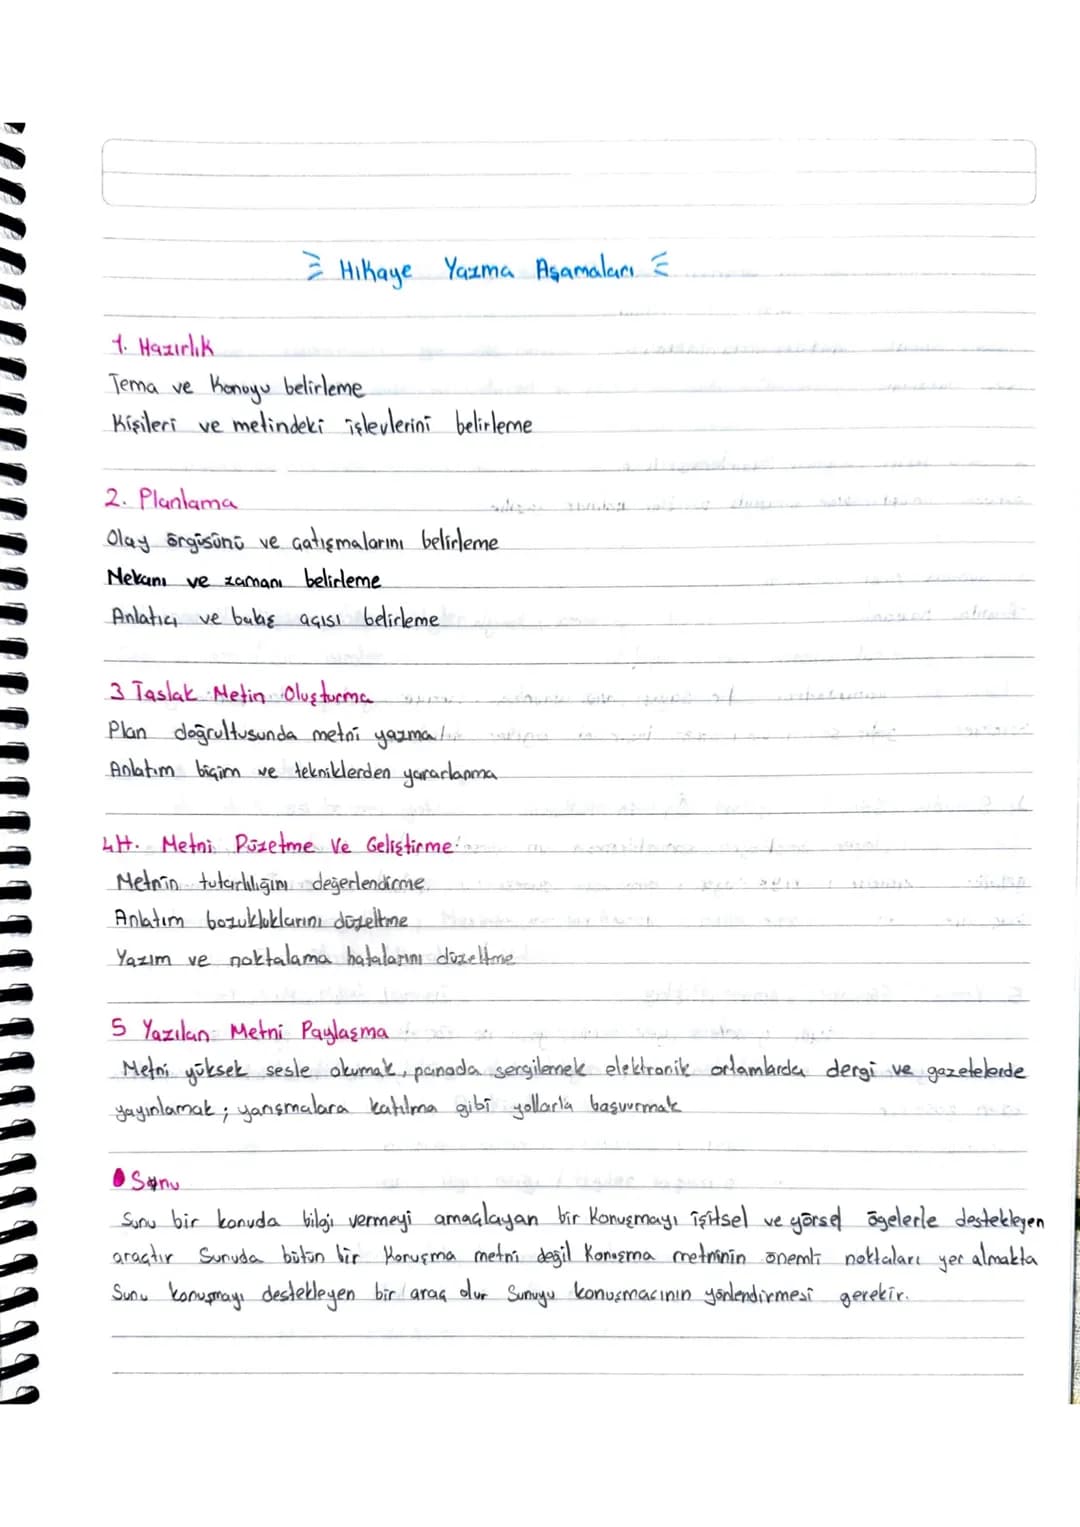 Hikaye Yazma Aşamaları
1. Hazırlık
Tema ve Konuyu belirleme
Kişileri ve metindeki işlevlerini belirleme
2. Planlama
Olay örgüsünü ve çatışmalarını belirleme
Mekanı ve zamanı belirleme
Anlatıcı ve bakış açısı belirleme
3 Taslak Metin Oluşturma
Plan doğrultusunda metni yazma
Anlatım biçim ve tekniklerden yararlanma
4. Metni Düzetme Ve Geliştirme
Metnin tutarlılığını değerlendirme
Anlatım bozukluklarını düzeltme
Yazım ve noktalama hatalarını düzeltme
5 Yazılan Metni Paylaşma
Metni yüksek sesle okumak, panoda sergilemek elektronik ortamlarda dergi ve gazetelerde
yayınlamak; yarışmalara katılma gibi yollarla başvurmak
Sunu
Sunu bir konuda bilgi vermeyi amaçlayan bir Konuşmayı işitsel ve görsel ögelerle destekleyen
araçtır Sunuda bütün bir Konuşma metni değil Konuşma metninin önemli noktaları yer almakta
Sunu konuşmayı destekleyen bir araç olur Sunuyu konuşmacının yönlendirmesi gerekir.